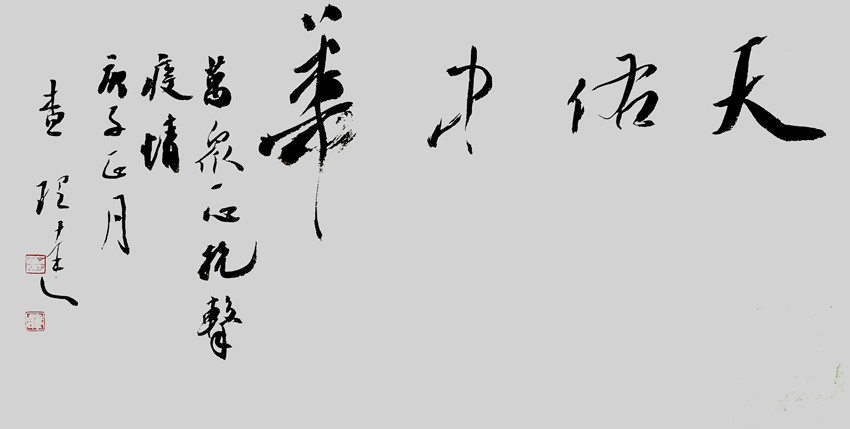 天佑中華
萬衆一心抗擊
疫情
庚子正月
查理達